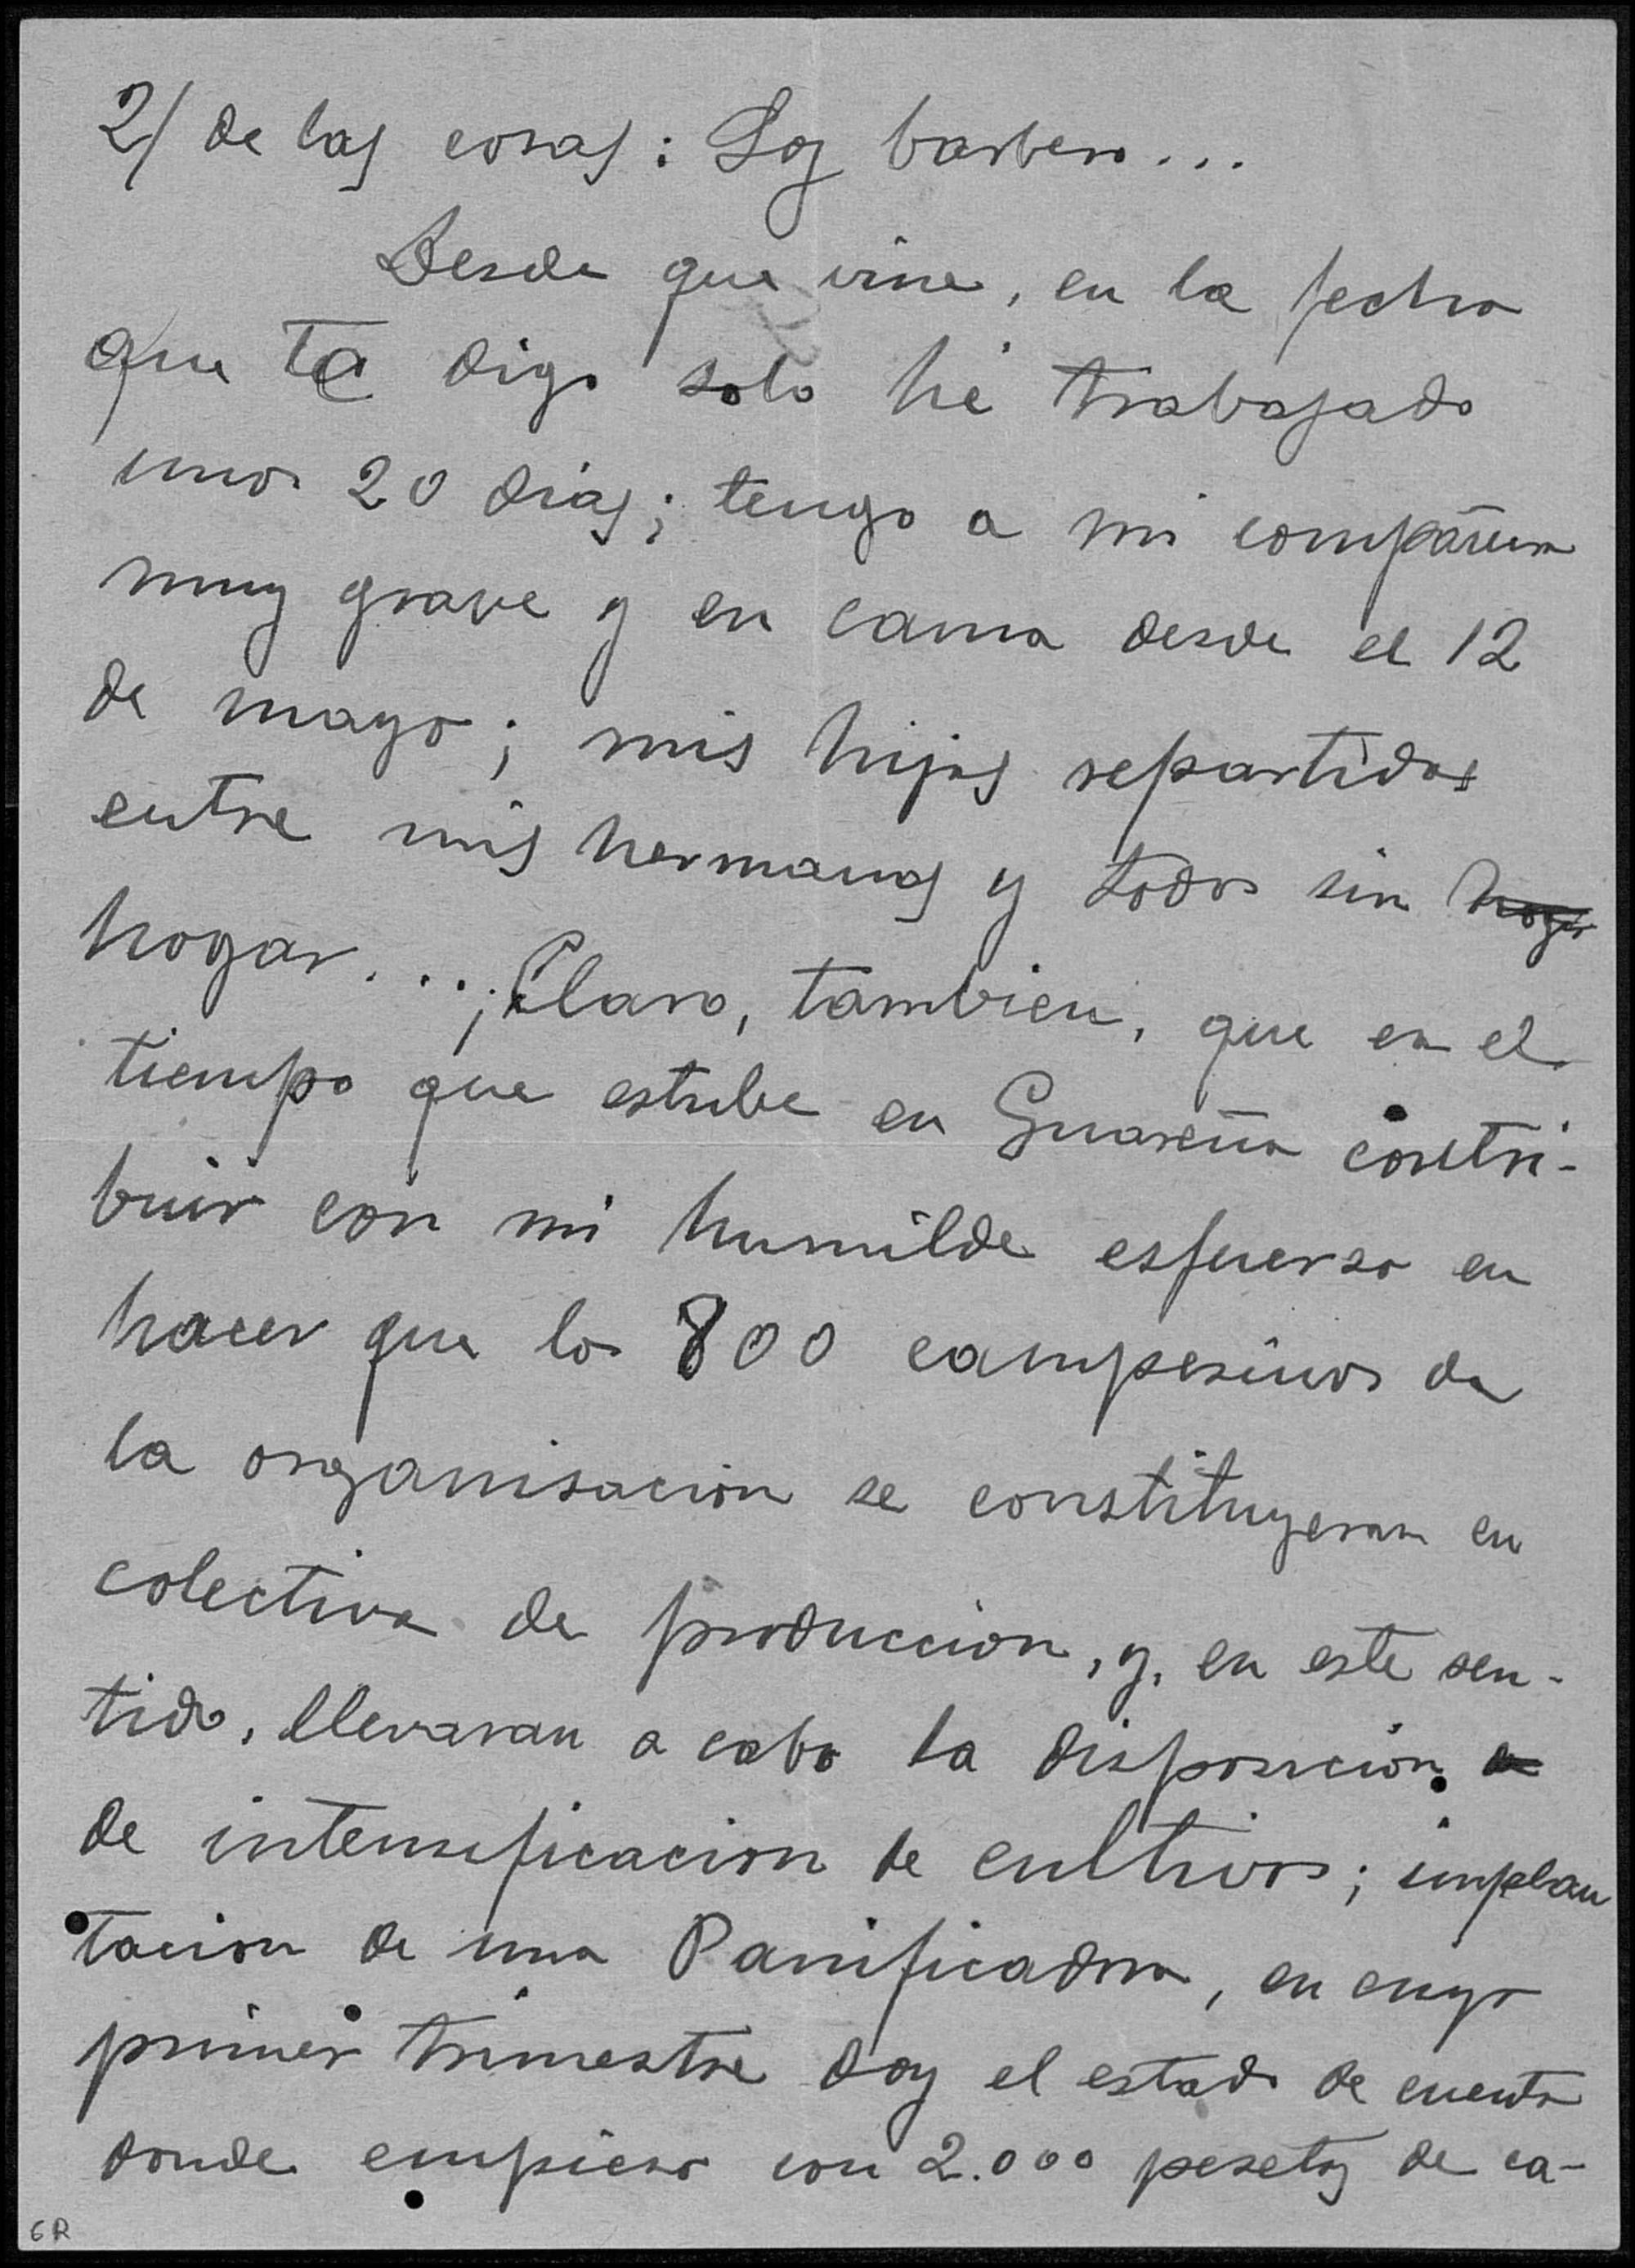 2/ de las cosas: Soy barbero...
Desde que vine, en la fecha
que te digo solo hé trabajado
unos 20 dias; tengo a mi compañera
muy grave y en cama desde el 12
de mayo; mis hijos repartidos
entre mis hermanos y todos sin hogar
hogar...¡Claro, tambien, que en el
tiempo que estube en Guareña contri-
buir con mi humilde esfuerso en
hacer que los 800 campesinos de
la organisacion se constituyeran en
colectiva de produccion, y, en este sen-
tido, llevaran a cabo la disposicion
de intensificacion de cultivos; implan
tacion de una Panificadora, en cuyo
primer trimestre doy el estado de cuenta
donde empieso con 2.000 pesetas de ca-
6R